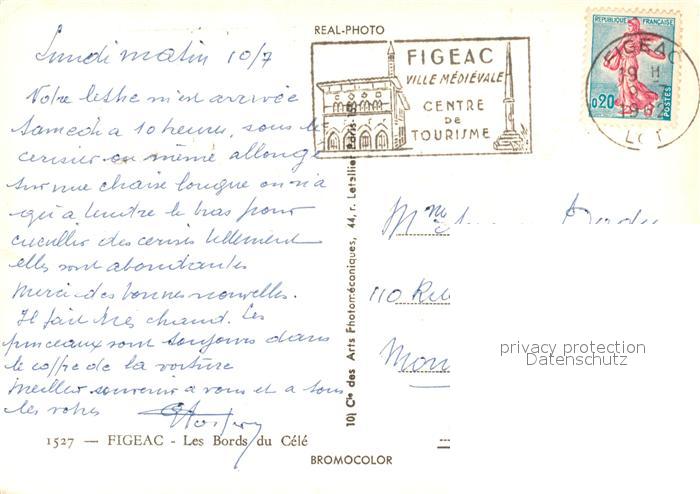 REAL-PHOTO
Lundi matin 10/7
Votre lettre m'est arrivée
Samedi a 10 heures, sous le
cerisier ou même allongé
sur une chaise longue on n'a
qu'a tendre le bras pour
cueillir des cerises tellement
elles sont abondantes
Merci des bonnes nouvelles.
Il fait très chaud. Les
pinceaux sont toujours dans
le coffre de la voiture
Meilleur souvenir a vous et a tous
les votres
1527 — FIGEAC - Les Bords du Célé
BROMOCOLOR
10) Cie des Arts Photomécaniques, 44, r. Letellier Paris-
FIGEAC
VILLE MÉDIÉVALE
CENTRE
DE
TOURISME
REPUBLIQUE FRANÇAISE
0,20
POSTES
FIGEAC
19 H
9
1962
LOT
Mme
110 Rue
Mon
privacy protection
Datenschutz